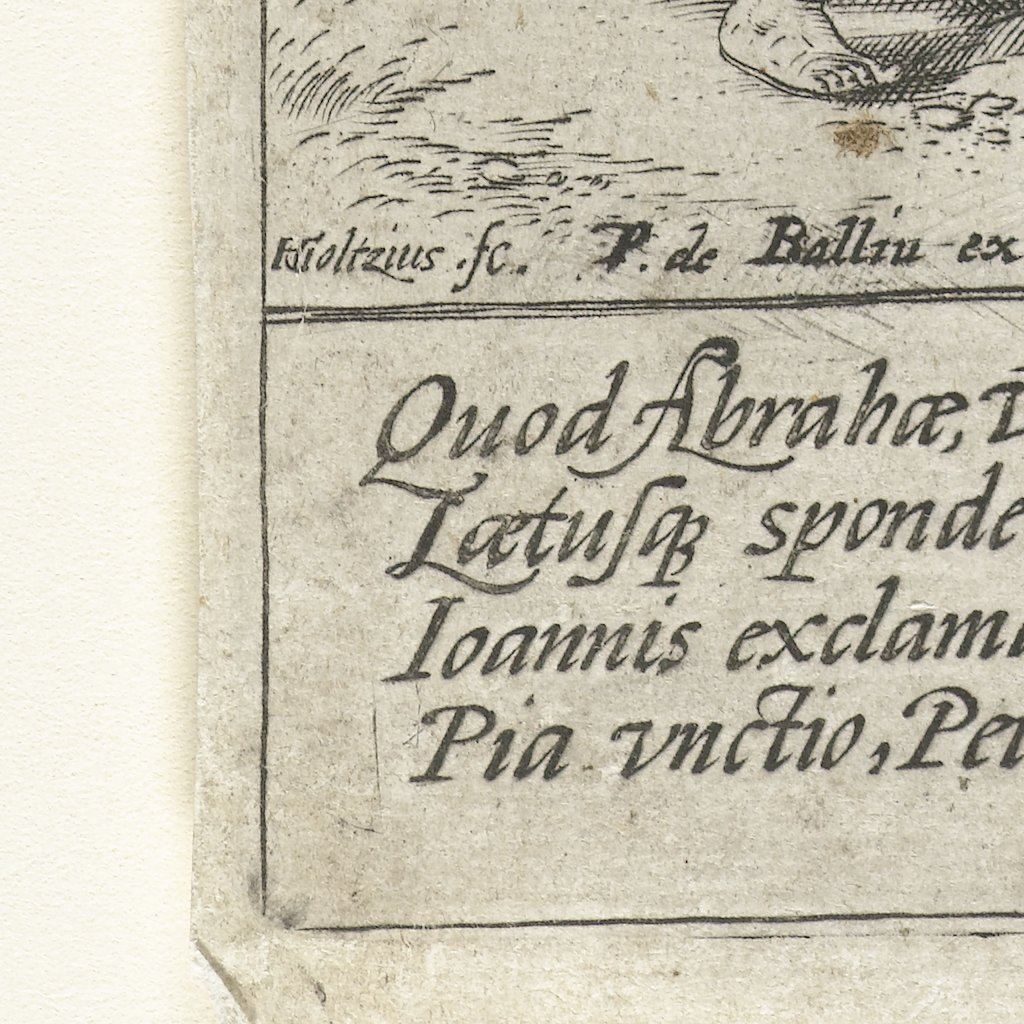 HGoltzius .fc. P. de Balliu ex
Quod Abrahæ,
Lætuſqꝫ sponde
Ioannis exclama
Pia vnctio, Pet